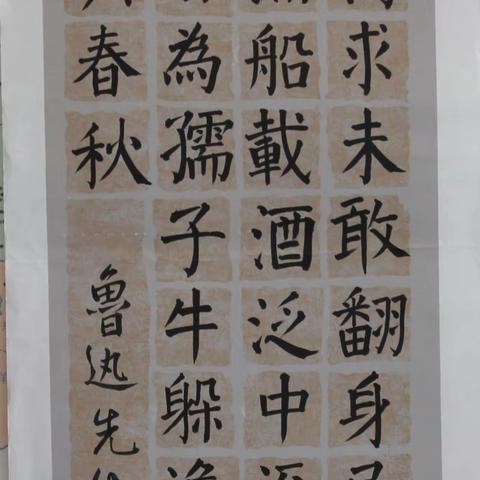 求未敢翻身
船載酒泛中
為孺子牛躲
春秋
魯迅先